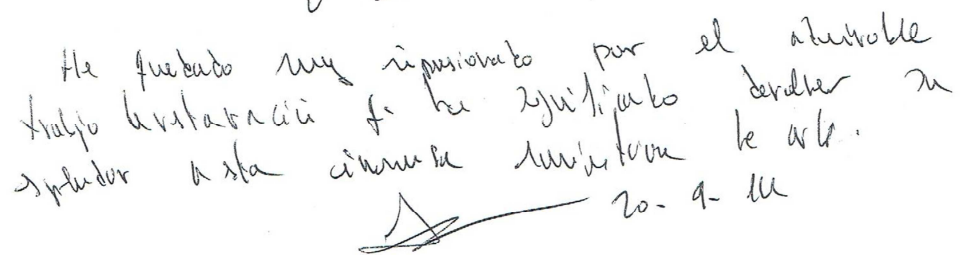 He quedado muy impresionado por el admirable
trabajo restauración q. ha significado devolver su
esplendor a esta inmensa de arte.
20-9-